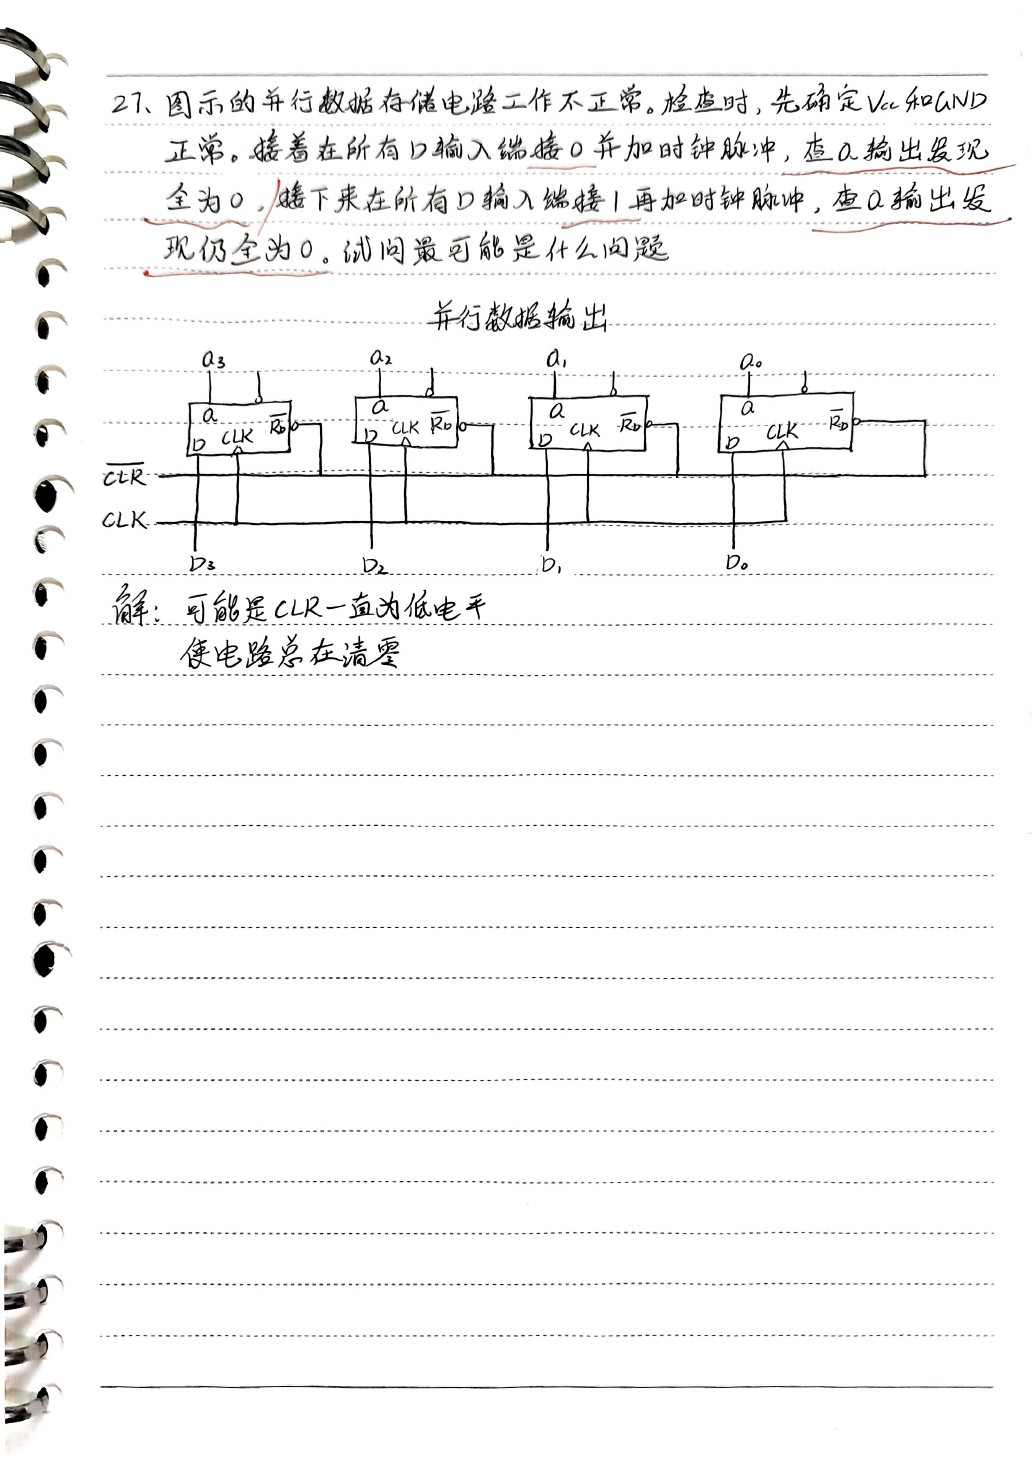 27、图示的并行数据存储电路工作不正常。检查时,先确定Vcc和GND
正常。接着在所有D输入端接0并加时钟脉冲,查Q输出发现
全为0,接下来在所有D输入端接1再加时钟脉冲,查Q输出发
现仍全为0。试问最可能是什么问题
并行数据输出
Q3 Q2 Q1 Q0
Q Q Q Q
D CLK R̅D̅ D CLK R̅D̅ D CLK R̅D̅ D CLK R̅D̅
C̅L̅R̅
CLK
D3 D2 D1 D0
解:可能是CLR一直为低电平
使电路总在清零